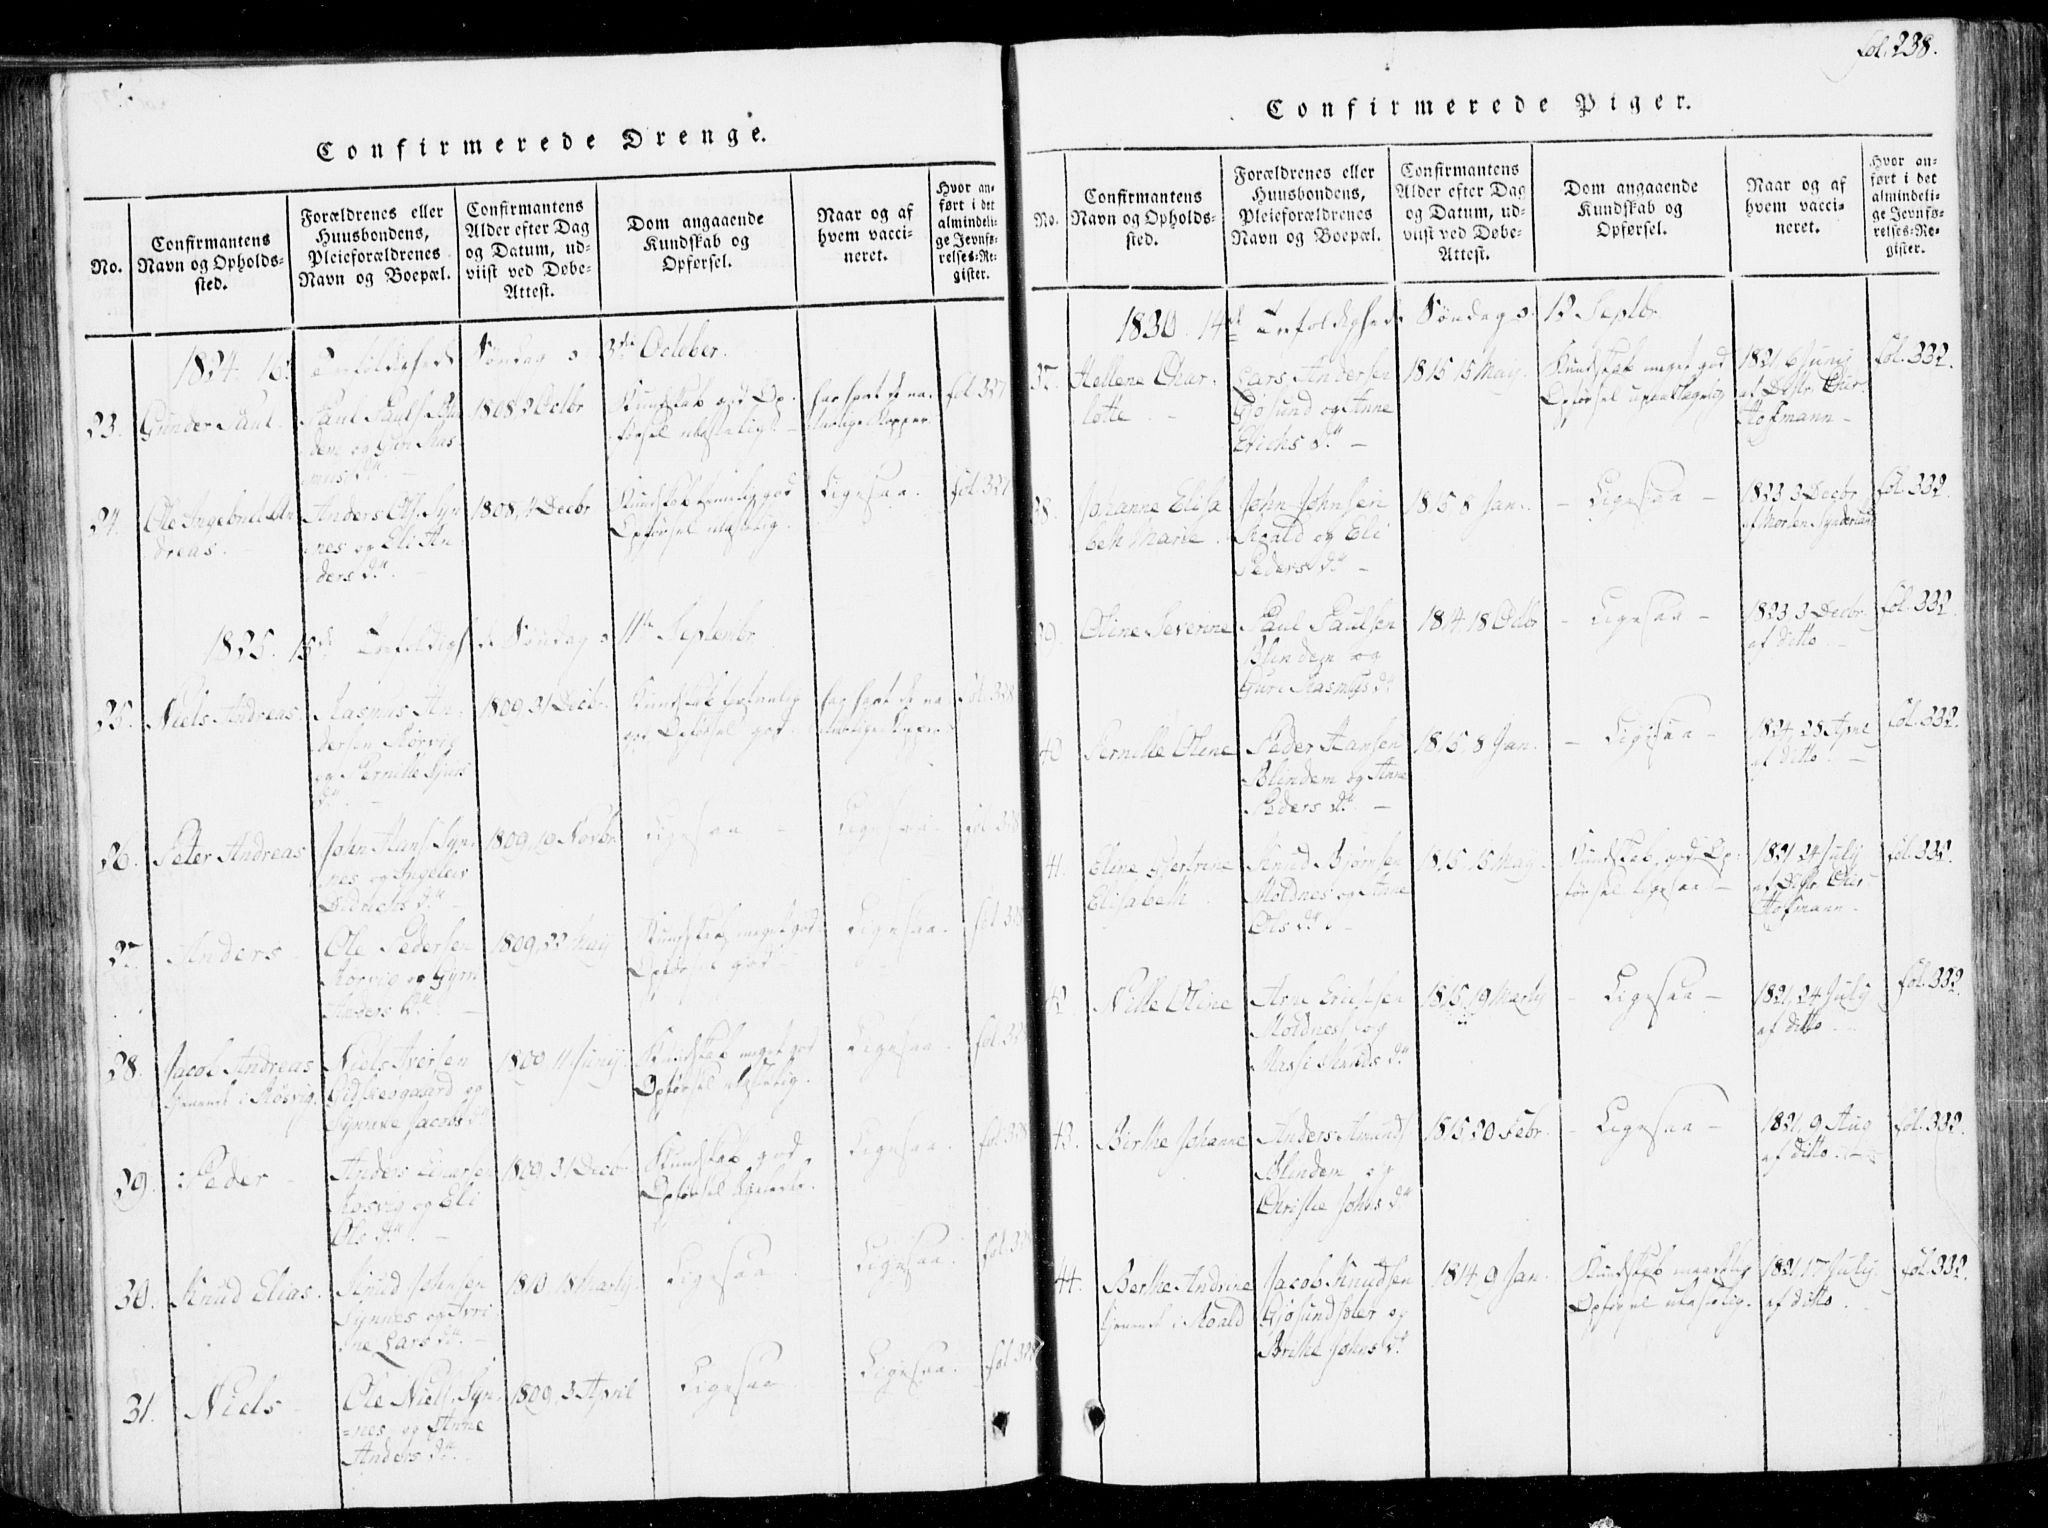 Confirmerede Drenge.
No.
Confirmantens
Navn og Opholds-
sted.
Forældrenes eller
Huusbondens,
Pleieforældrenes
Navn og Boepæl.
Confirmantens
Alder efter Dag
og Datum, ud-
viist ved Døbe-
Attest.
Dom angaaende
Kundskab og
Opførsel.
Naar og af
hvem vacci-
neret.
Hvor an-
ført i det
almindeli-
ge Jevnfø-
relses-Re-
gister.
1824. Søndag 3die October.
23.
Gunder Paul.
Paul Pauls. Blin
dem og Guri Ras
mus Dr
1808 2 Octbr
Kundskab god Op-
førsel ulastelig
har havt de na-
turlige Kopper.
fol 327
24.
Ole Ingebrict An
dreas.
Anders Ols. Syn
nes og Eli An
ders Dr.
1808, 4 Decbr
Kundskab temmelig god
Opførsel ulastelig.
Ligesaa.
fol. 327
1825. 15de Trefoldigheds Søndag 11te Septembr
25.
Niels Andreas
Rasmus An
dersen Rørvig
og Pernille
Dr.
1809 31 Decbr
Kundskab
god Opførsel god
har havt de na
turlige Kopper.
fol. 328
26.
Peter Andreas
John Hans. Syn
nes og Ingeleiv
Didrichs Dr.
1809, 19 Novbr.
Ligesaa
Ligesaa
fol. 328
27.
Anders
Ole Pedersen
Rørvig og Gurn
Anders Dr.
1809, 22 Maij
Kundskab meget god
Opførsel god
Ligesaa.
fol 328
28.
Jacob Andreas
tjenende i Rørvig.
Niels Iversen
Gidskeogaard og
Synneve Jacobs Dr
1809 11 Junij
Kundskab meget god
Opførsel ulastelig.
Ligesaa.
fol. 328
29.
Peder
Anders
Rørvig og Eli
Ols Dr.
1809 31 Decbr
Kundskab god
Opførsel
Ligesaa.
fol. 328
30.
Knud Elias.
Knud Johnsen
Synnes og Avri
ne Lars Dr.
1810, 18 Marty
Ligesaa
Ligesaa.
fol. 328
31.
Niels
Ole Niels. Syn-
=nes, og Anne
Anders Dr.
1809, 3 April
Ligesaa
Ligesaa.
fol. 328
fol. 238.
Confirmerede Piger.
No.
Confirmantens
Navn og Opholds-
sted.
Forældrenes eller
Huusbondens,
Pleieforældrenes
Navn og Boepæl.
Confirmantens
Alder efter Dag
og Datum, ud-
viist ved Døbe-
Attest.
Dom angaaende
Kundskab og
Opførsel.
Naar og af
hvem vacci-
neret.
Hvor an-
ført i det
almindeli-
ge Jevnfø-
relses-Re-
gister.
1830. 14de Trefoldigheds Søndag d. 12 Septbr
37.
Hellene Char-
lotte
Lars Andersen
Gjøsund og Anne
Erichs Dr
1815 15 Maij.
Kundskab meget god
Opførsel upaaklagelig
1821 6 Junij
af Distr. Chir.
Hofmann
fol. 332.
38.
Johanne Elisa
beth Marie.
John Johnsen
Roald og Eli
Peders Dr
1815 8 Jan.
Ligesaa
1823 3 Decbr
af Morten Synderland
fol. 332.
39.
Oline Severine
Paul Paulsen
Blindem og
Guri Rasmus Dr
1814 18 Octbr
Ligesaa
1823 3 Decbr
af ditto.
fol. 332.
40
Pernille Oline
Peder Hansen
Blindem og Anne
Peders Dr.
1815 8 Jan.
Ligesaa
1824 28 Apr.
af ditto.
fol. 332.
41.
Eline Gjertrine
Elisabeth.
Knud Bjørnsen
Moldnes og Anne
Ols Dr
1815. 15 Maij.
Kundskab god Op-
førsel ligesaa.
1821 24 July
af Distr. Chir.
Hofmann.
fol. 332.
42.
Nille Oline
Arne Erichsen
Moldnes og
Massi Knuds Dr
1815. 19 Marty
Ligesaa
1821, 24 July
af ditto.
fol. 332
43.
Birthe Johanne
Anders Amunds.
Blindem og
Christie Johns Dr
1815 20 Febr.
Ligesaa
1821, 9 Aug
af ditto.
fol. 332.
44.
Berthe Andrine
tjenende i Roald
Jacob Knudsen
Gjøsundsæter og
Brithe Johns Dr
1814 9 Jan.
Kundskab maadelig
Opførsel ulastelig.
1821 17 July
af ditto.
fol. 332.